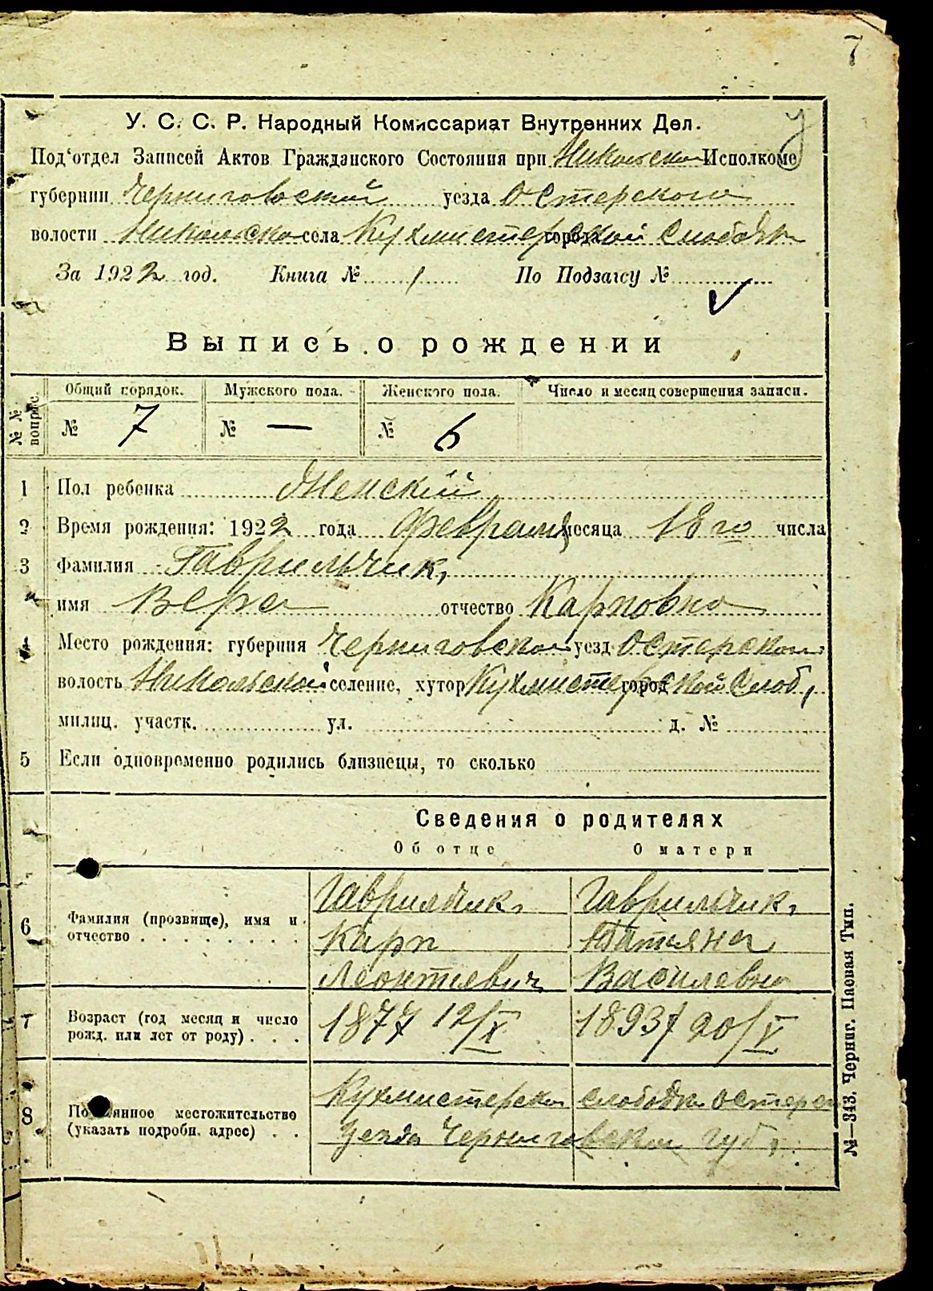 7
У. С. С. Р. Народный Комиссариат Внутренних Дел.
Под'отдел Записей Актов Гражданского Состояния при Никольском Исполкоме
губернии Черниговской уезда Остерского
волости Никольской села Кухмистерской города Слободки
За 1922 год. Книга № 1 По Подзагсу №
Выпись о рождении
№ № вопрос.
Общий порядок. Мужского пола. Женского пола. Число и месяц совершения записи.
№ 7 № — № 6
1 Пол ребенка Женский
2 Время рождения: 1922 года Февраля месяца 18го числа
3 Фамилия Гаврильчик,
имя Вера отчество Карповна
4 Место рождения: губерния Черниговской уезд Остерском
волость Никольской селение, хутор Кухмистерской город Слоб,
милиц. участк. ул. д. №
5 Если одновременно родились близнецы, то сколько
Сведения о родителях
Об отце О матери
6 Фамилия (прозвище), имя и отчество Гаврильчик, Гаврильчик,
Карп Татьяна
Леонтиевич Василевна
7 Возраст (год месяц и число рожд. или лет от роду) 1877 12/IX 1893 20/V
8 Постоянное местожительство (указать подробн. адрес) Кухмистерской слободки Остерс
уезда Черниговской губ,
№—343. Черниг. Паевая Тип.